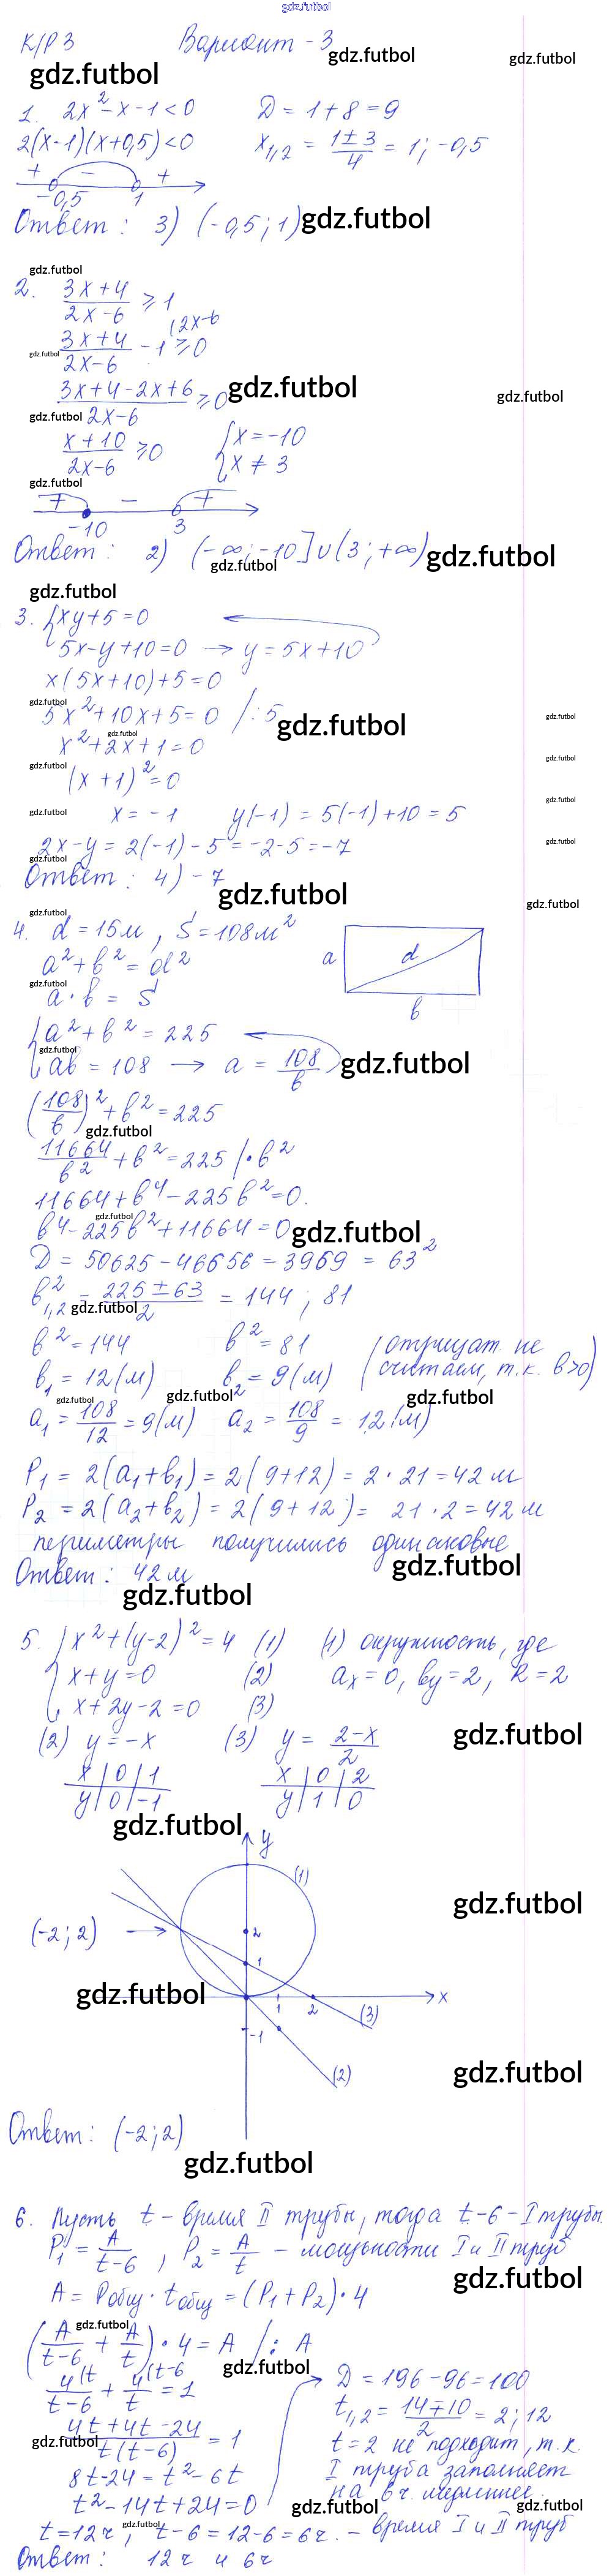 gdz.futbol
К/Р 3 Вариант - 3
gdz.futbol gdz.futbol gdz.futbol
1. 2x² - x - 1 < 0 D = 1 + 8 = 9
2(x-1)(x+0,5) < 0 x₁,₂ = (1 ± 3)/4 = 1; -0,5
+ - +
-0,5 1
Ответ: 3) (-0,5; 1) gdz.futbol
gdz.futbol
2. (3x+4)/(2x-6) ≥ 1
(2x-6
gdz.futbol (3x+4)/(2x-6) - 1 ≥ 0
(3x+4-2x+6)/(2x-6) ≥ 0 gdz.futbol gdz.futbol
gdz.futbol
(x+10)/(2x-6) ≥ 0 { x = -10
x ≠ 3
gdz.futbol
+ - +
-10 3
Ответ: 2) (-∞; -10] ∪ (3; +∞) gdz.futbol
gdz.futbol
gdz.futbol
3. { xy + 5 = 0
5x - y + 10 = 0 → y = 5x + 10
x(5x+10) + 5 = 0
gdz.futbol
5x² + 10x + 5 = 0 /: 5 gdz.futbol gdz.futbol
gdz.futbol
x² + 2x + 1 = 0 gdz.futbol
gdz.futbol
(x+1)² = 0
gdz.futbol
gdz.futbol x = -1 y(-1) = 5(-1) + 10 = 5
2x - y = 2(-1) - 5 = -2 - 5 = -7 gdz.futbol
gdz.futbol
Ответ: 4) - 7
gdz.futbol gdz.futbol
gdz.futbol
4. d = 15м, S = 108м²
a² + b² = d² a d
gdz.futbol
a · b = S b
{ a² + b² = 225
gdz.futbol
ab = 108 → a = 108/b gdz.futbol
(108/b)² + b² = 225
gdz.futbol
11664/b² + b² = 225 /· b²
11664 + b⁴ - 225b² = 0.
gdz.futbol
b⁴ - 225b² + 11664 = 0 gdz.futbol
D = 50625 - 46656 = 3969 = 63²
b²₁,₂ = (225 ± 63)/2 = 144; 81
gdz.futbol
b² = 144 b² = 81 (отрицат. не
b₁ = 12 (м) b₂ = 9 (м) считаем, т.к. b>0)
gdz.futbol gdz.futbol gdz.futbol
a₁ = 108/12 = 9 (м) a₂ = 108/9 = 12 (м)
P₁ = 2(a₁+b₁) = 2(9+12) = 2 · 21 = 42 м
P₂ = 2(a₂+b₂) = 2(9+12) = 21 · 2 = 42 м
периметры получились одинаковые
Ответ: 42 м gdz.futbol
gdz.futbol
5. { x² + (y-2)² = 4 (1) (1) окружность, где
x + y = 0 (2) aₓ = 0, bᵧ = 2, R = 2
x + 2y - 2 = 0 (3)
(2) y = -x (3) y = (2-x)/2 gdz.futbol
x | 0 | 1 x | 0 | 2
y | 0 | -1 y | 1 | 0
gdz.futbol
y
(1)
gdz.futbol
(-2; 2) → 2
1
gdz.futbol 1 2 x
(3)
-1
(2) gdz.futbol
Ответ: (-2; 2)
gdz.futbol
6. Пусть t - время II трубы, тогда t-6 - I трубы.
P₁ = A/(t-6), P₂ = A/t - мощности I и II труб
gdz.futbol
A = Pобщ · tобщ = (P₁ + P₂) · 4
gdz.futbol
(A/(t-6) + A/t) · 4 = A /: A
gdz.futbol
(t (t-6
4/(t-6) + 4/t = 1 D = 196 - 96 = 100
(4t + 4t - 24)/(t(t-6)) = 1 t₁,₂ = (14 ∓ 10)/2 = 2; 12
gdz.futbol t = 2 не подходит, т.к.
8t - 24 = t² - 6t I труба заполняет
t² - 14t + 24 = 0 на 6 ч. медленнее.
gdz.futbol gdz.futbol
gdz.futbol
t = 12 ч, t - 6 = 12 - 6 = 6 ч. - время I и II труб
Ответ: 12 ч и 6 ч